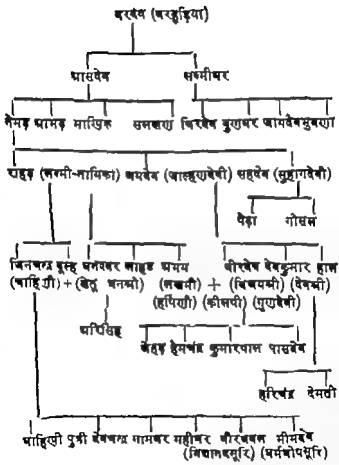 वरदेव (वरहुड़िया)
आसदेव लक्ष्मीधर
नेमड़ आभड़ माणिक सलखण थिरदेव गुणधर जगदेव भुवणा
राहड़ (लक्ष्मी-नायिका) जयदेव (जाल्हणदेवी) सहदेव (सुहागदेवी)
पेढ़ा गोसल
जिनचन्द्र दूल्ह धनेश्वर लाहड़ अभय वीरदेव देवकुमार हाल
(चाहिणी) + (खेतू धनश्री) (लखमी) + (विजयश्री) (देवश्री)
(हर्षिणी) (कीलषी) (पुणदेवी)
अरिसिंह
जेहड़ हेमचंद्र कुमारपाल पासदेव
हरिचंद्र देमती
चाहिणी पुत्री देवचन्द्र नामधर महीधर वीरधवल भीमदेव
(विद्यानंदसूरि) (धर्मघोषसूरि)